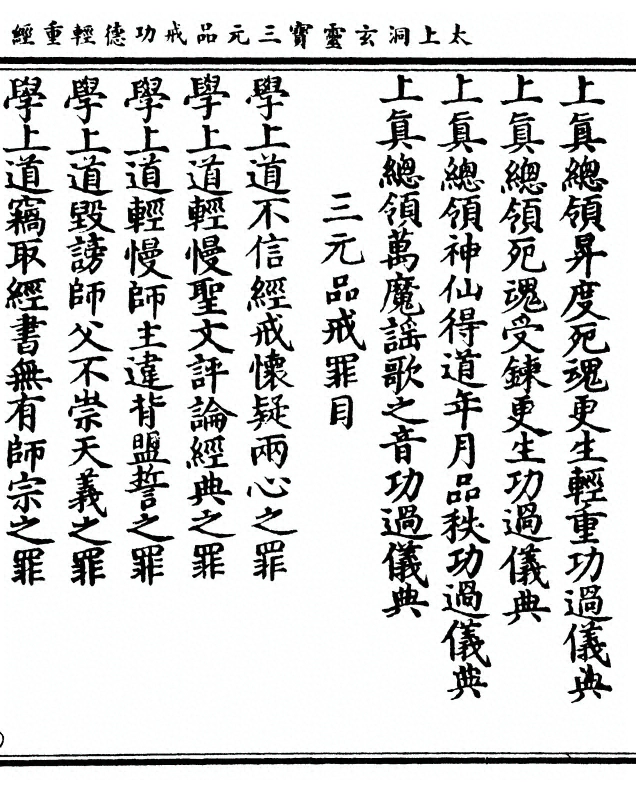 太上洞玄靈寶三元品戒功德輕重經
上眞總領昇度死魂更生輕重功過儀典
上眞總領死魂受鍊更生功過儀典
上眞總領神仙得道年月品秩功過儀典
上眞總領萬魔謡歌之音功過儀典
三元品戒罪目
學上道不信經戒懷疑兩心之罪
學上道輕慢聖文評論經典之罪
學上道輕慢師主違背盟誓之罪
學上道毀謗師父不崇天義之罪
學上道竊取經書無有師宗之罪